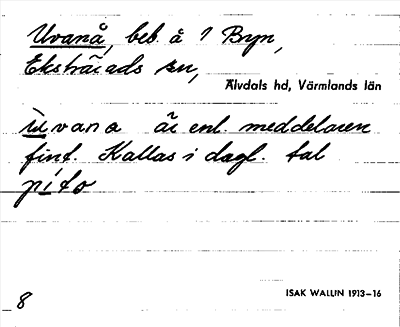 Uvanå, beb. å ? Byn,
Ekshärads sn,
Älvdals hd, Värmlands län
ùvana är enl. meddelaren
finf. Kallas i dagl. tal
píto
8
ISAK WALLIN 1913–16